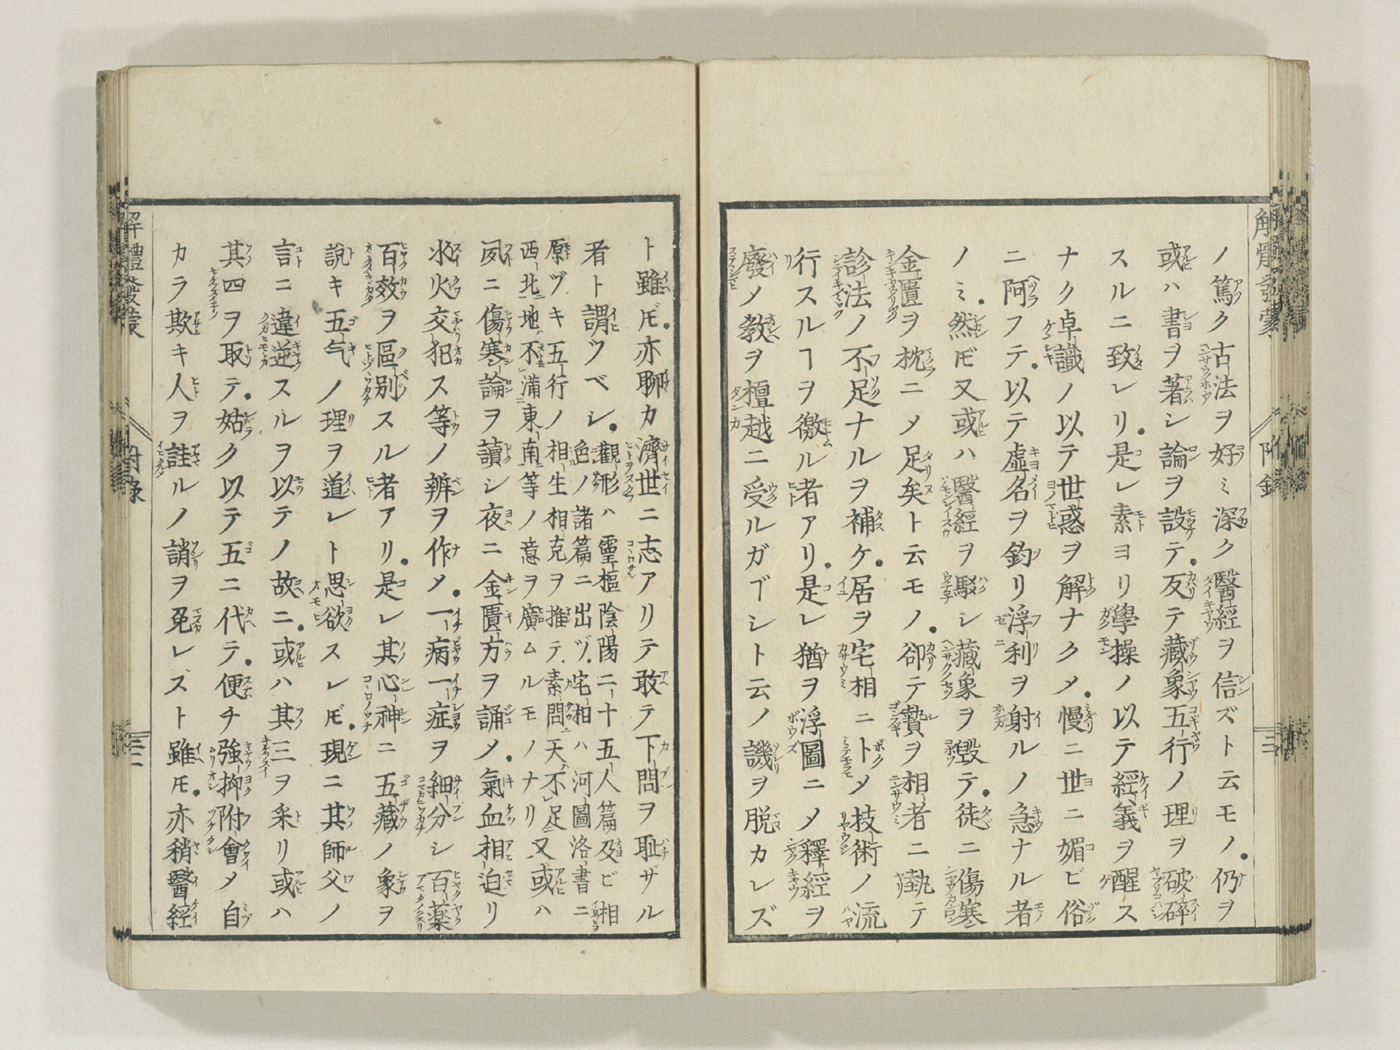 解體發蒙
附錄
三
ノ篤ク古法ヲ好ミ深ク醫經ヲ信ズト云モノ仍ヲ
或ハ書ヲ著シ論ヲ設テ反テ藏象五行ノ理ヲ破碎
スルニ致レリ是レ素ヨリ學操ノ以テ經義ヲ醒ス
ナク卓識ノ以テ世惑ヲ解ナクメ慢ニ世ニ媚ビ俗
ニ阿フテ以テ虛名ヲ釣リ浮利ヲ射ルノ急ナル者
ノミ然ㇹ又或ハ醫經ヲ駁シ藏象ヲ毀テ徒ニ傷寒
金匱ヲ枕ニメ足矣ト云モノ卻テ贄ヲ相者ニ執テ
診法ノ不足ナルヲ補ケ居ヲ宅相ニトメ技術ノ流
行スルヿヲ徼ル者アリ是レ猶ヲ浮圖ニメ釋經ヲ
廢メ敎ヲ檀越ニ受ルガゴシト云ノ譏ヲ脱カレズ
ト雖𪜈亦聊カ濟世ニ志アリテ敢テ下問ヲ恥ザル
者ト謂ヅベシ觀形ハ靈樞陰陽二十五人篇及ビ相
色ノ諸篇ニ出ヅ宅相ハ河圖洛書ニ
原ヅキ五行ノ相生相克ヲ推テ素問天不足
西北地不滿東南等ノ意ヲ廣ムルモノナリ又或ハ
夙ニ傷寒論ヲ讀シ夜ニ金匱方ヲ誦メ氣血相迫リ
水火交犯ス等ノ辨ヲ作メ一病一症ヲ細分シ百藥
百效ヲ區別スル者アリ是レ其心神ニ五藏ノ象ヲ
說キ五气ノ理ヲ道レト思欲スレ𪜈現ニ其師父ノ
言ニ違逆スルヲ以テノ故ニ或ハ其三ヲ采リ或ハ
其四ヲ取テ姑ク以テ五ニ代テ便チ強抑附會メ自
カラ欺キ人ヲ誑ルノ誚ヲ免レズト雖𪜈亦稍醫經
解體發蒙
附錄
三